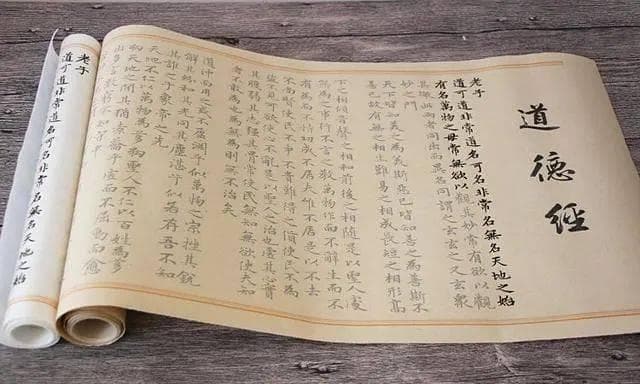 道德經
老子
道可道非常道名可名非常名無名天地之始
有名萬物之母常無欲以觀其妙常有欲以觀
其徼此兩者同出而異名同謂之玄玄之又玄衆
妙之門
天下皆知美之為美斯惡已皆知善之為善斯不
善已故有無之相生難易之相成長短之相形高
下之相傾音聲之相和前後之相隨是以聖人處
無為之事行不言之教萬物作而不辭生而不
有為而不恃功成不居夫唯不居是以不去
不尚賢使民不爭不貴難得之貨使民不為
盜不見可欲使民不亂是以聖人之治也虛其心實
其腹弱其志強其骨常使民無知無欲使夫知
者不敢為也為無為則無不治矣
道沖而用之或不盈淵乎似萬物之宗挫其銳
解其紛和其光同其塵湛乎似若存吾不知
其誰之子象帝之先
天地不仁以萬物為芻狗聖人不仁以百姓為芻
狗天地之間其猶橐籥乎虛而不屈動而愈
出多言數窮不如守中
老子
道可道非常道名可名非常名無名天地之始